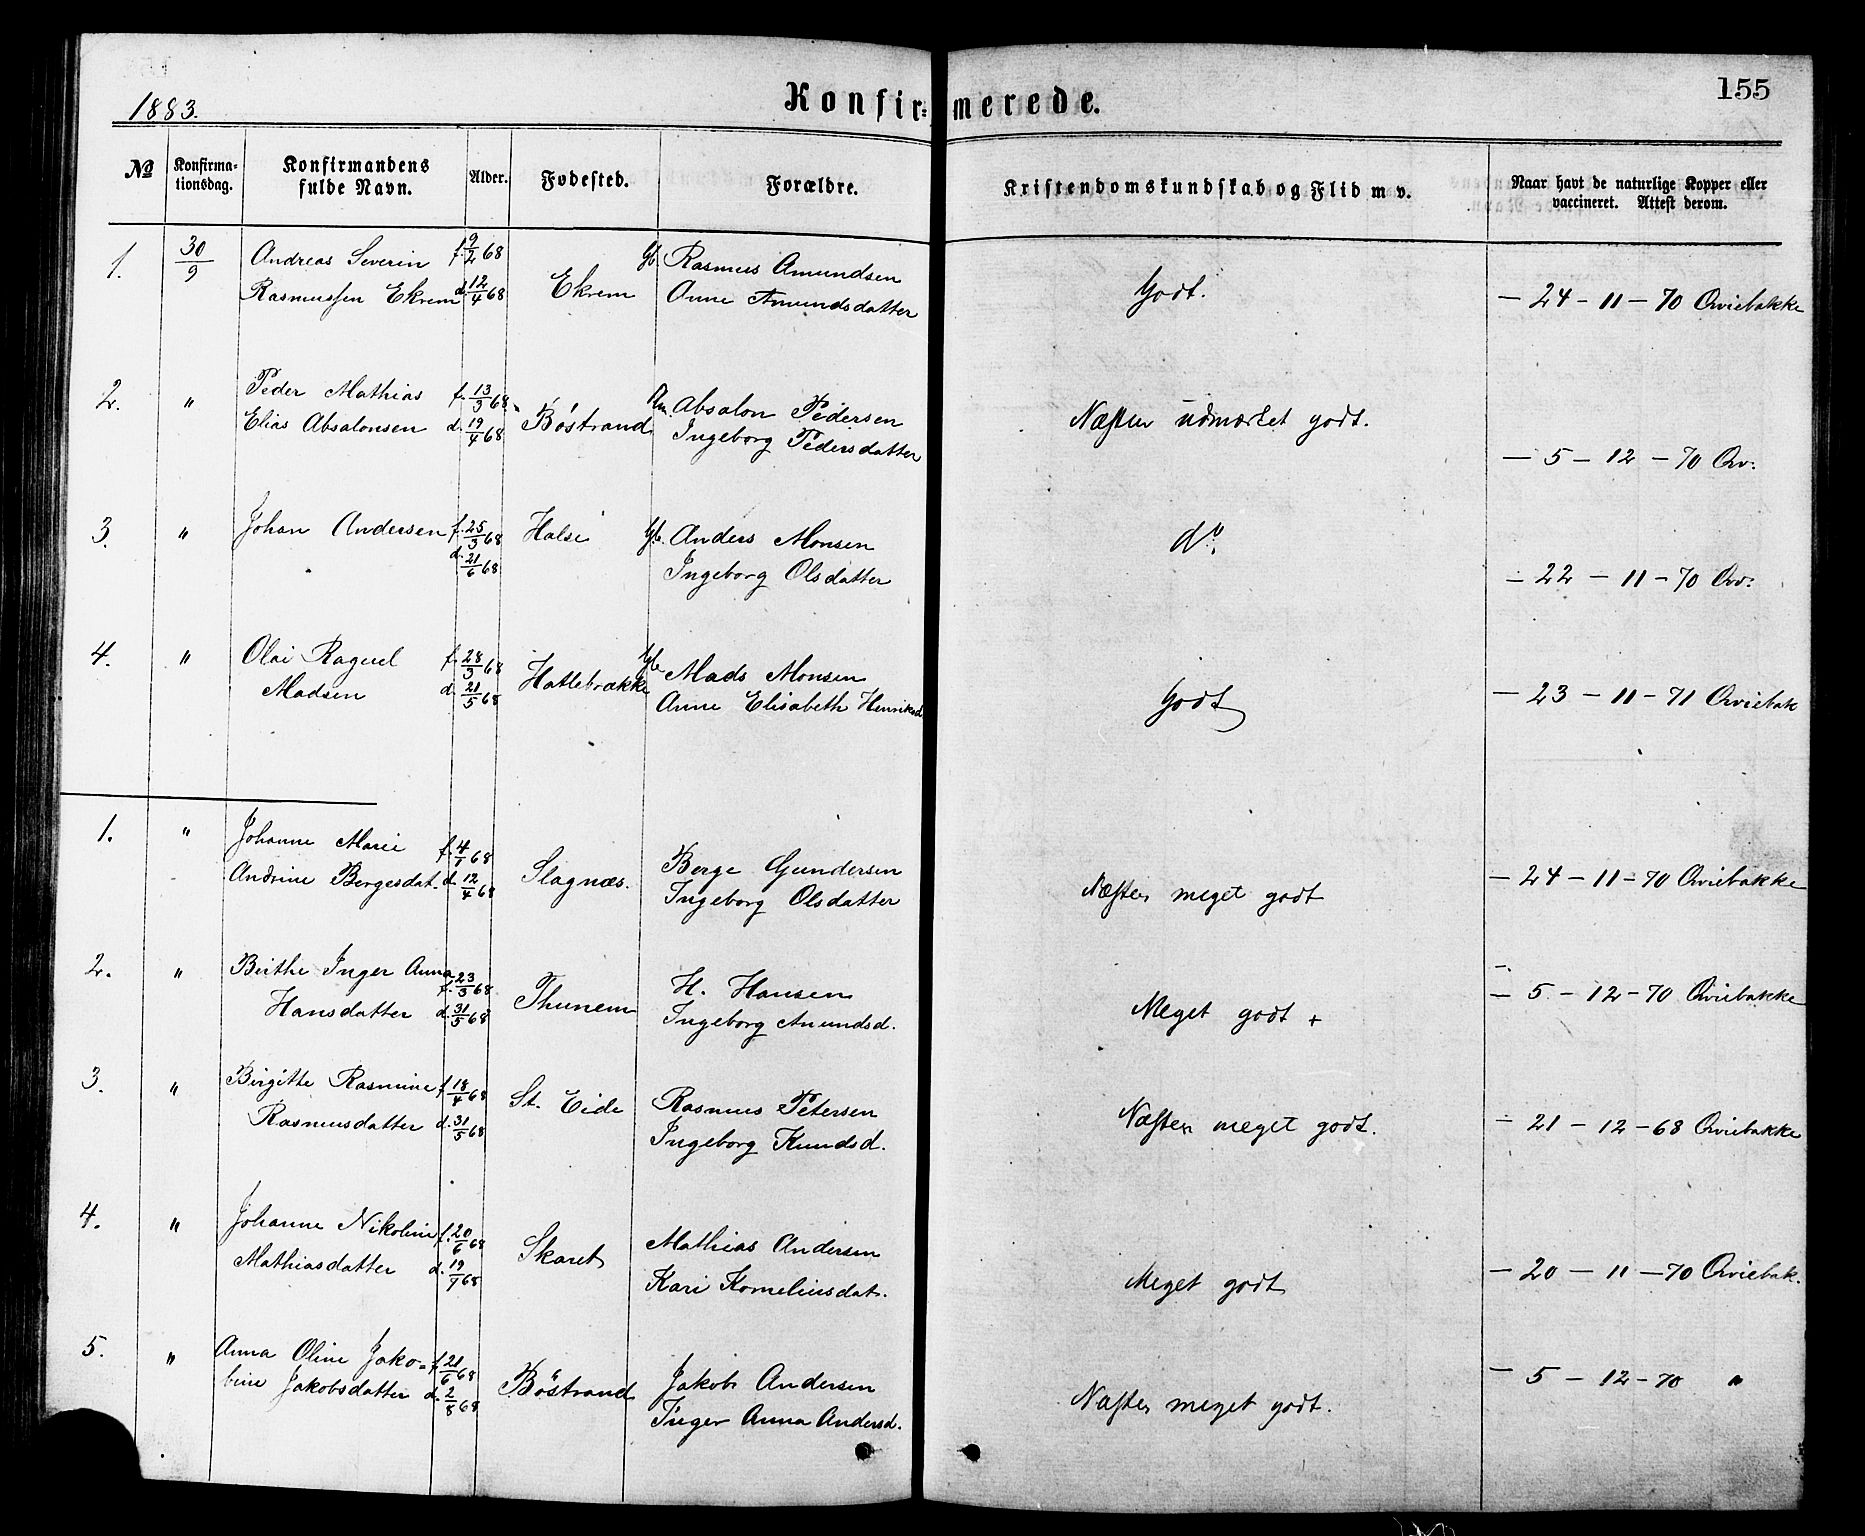 1883.
Konfir=merede.
155
No
Konfirma-tionsdag.
Konfirmandens fulde Navn.
Alder.
Fødested.
Forældre.
Kristendomskundskab og Flid m v.
Naar havt de naturlige Kopper eller vaccineret. Attest derom.
1. 30/9 Andreas Severin f. 9/2 68 Ekrem Gb. Rasmus Amundsen Godt. – 24 – 11 – 70 Qviebakke
Rasmussen Ekrem d. 12/4 68 Anne Amundsdatter
2. " Peder Mathias f. 13/3 68 Böstrand Absalon Pedersen Næsten udmærket godt. – 5 – 12 – 70 Qv:
Elias Absalonsen d. 19/4 68 Ingeborg Pedersdatter
3. " Johan Andersen f. 25/3 68 Halse Gb. Anders Monsen do – 22 – 11 – 70 Qv:
d. 21/6 68 Ingeborg Olsdatter
4. " Olai Raguel f. 28/3 68 Hatlebrække Gb. Mads Monsen Godt – 23 – 11 – 71 Qviebak
Madsen d. 21/5 68 Anne Elisabeth Henriksd
1. " Johanne Marie f. 4/1 68 Slagnæs. Berge Gundersen Næsten meget godt – 24 – 11 – 70 Qviebakke
Andrine Bergesdat. d. 12/4 68 Ingeborg Olsdatter
2. " Birthe Inger Anna f. 23/3 68 Thunem H. Hansen Meget godt + – 5 – 12 – 70 Qviebakke
Hansdatter d. 31/5 68 Ingeborg Amundsd.
3. " Birgitte Rasmine f. 18/4 68 St. Eide Rasmus Petersen Næsten meget godt. – 21 – 12 – 68 Qviebakke
Rasmusdatter d. 31/5 68 Ingeborg Knudsd.
4. " Johanne Nikoline f. 20/6 68 Skaret Mathias Andersen Meget godt – 20 – 11 – 70 Qviebak.
Mathiasdatter d. 19/7 68 Kari Korneliusdat.
5. " Anna Oline Jako= f. 21/6 68 Böstrand Jakob Andersen Næsten meget godt. – 5 – 12 – 70 "
bine Jakobsdatter d. 2/8 68 Inger Anna Andersd.